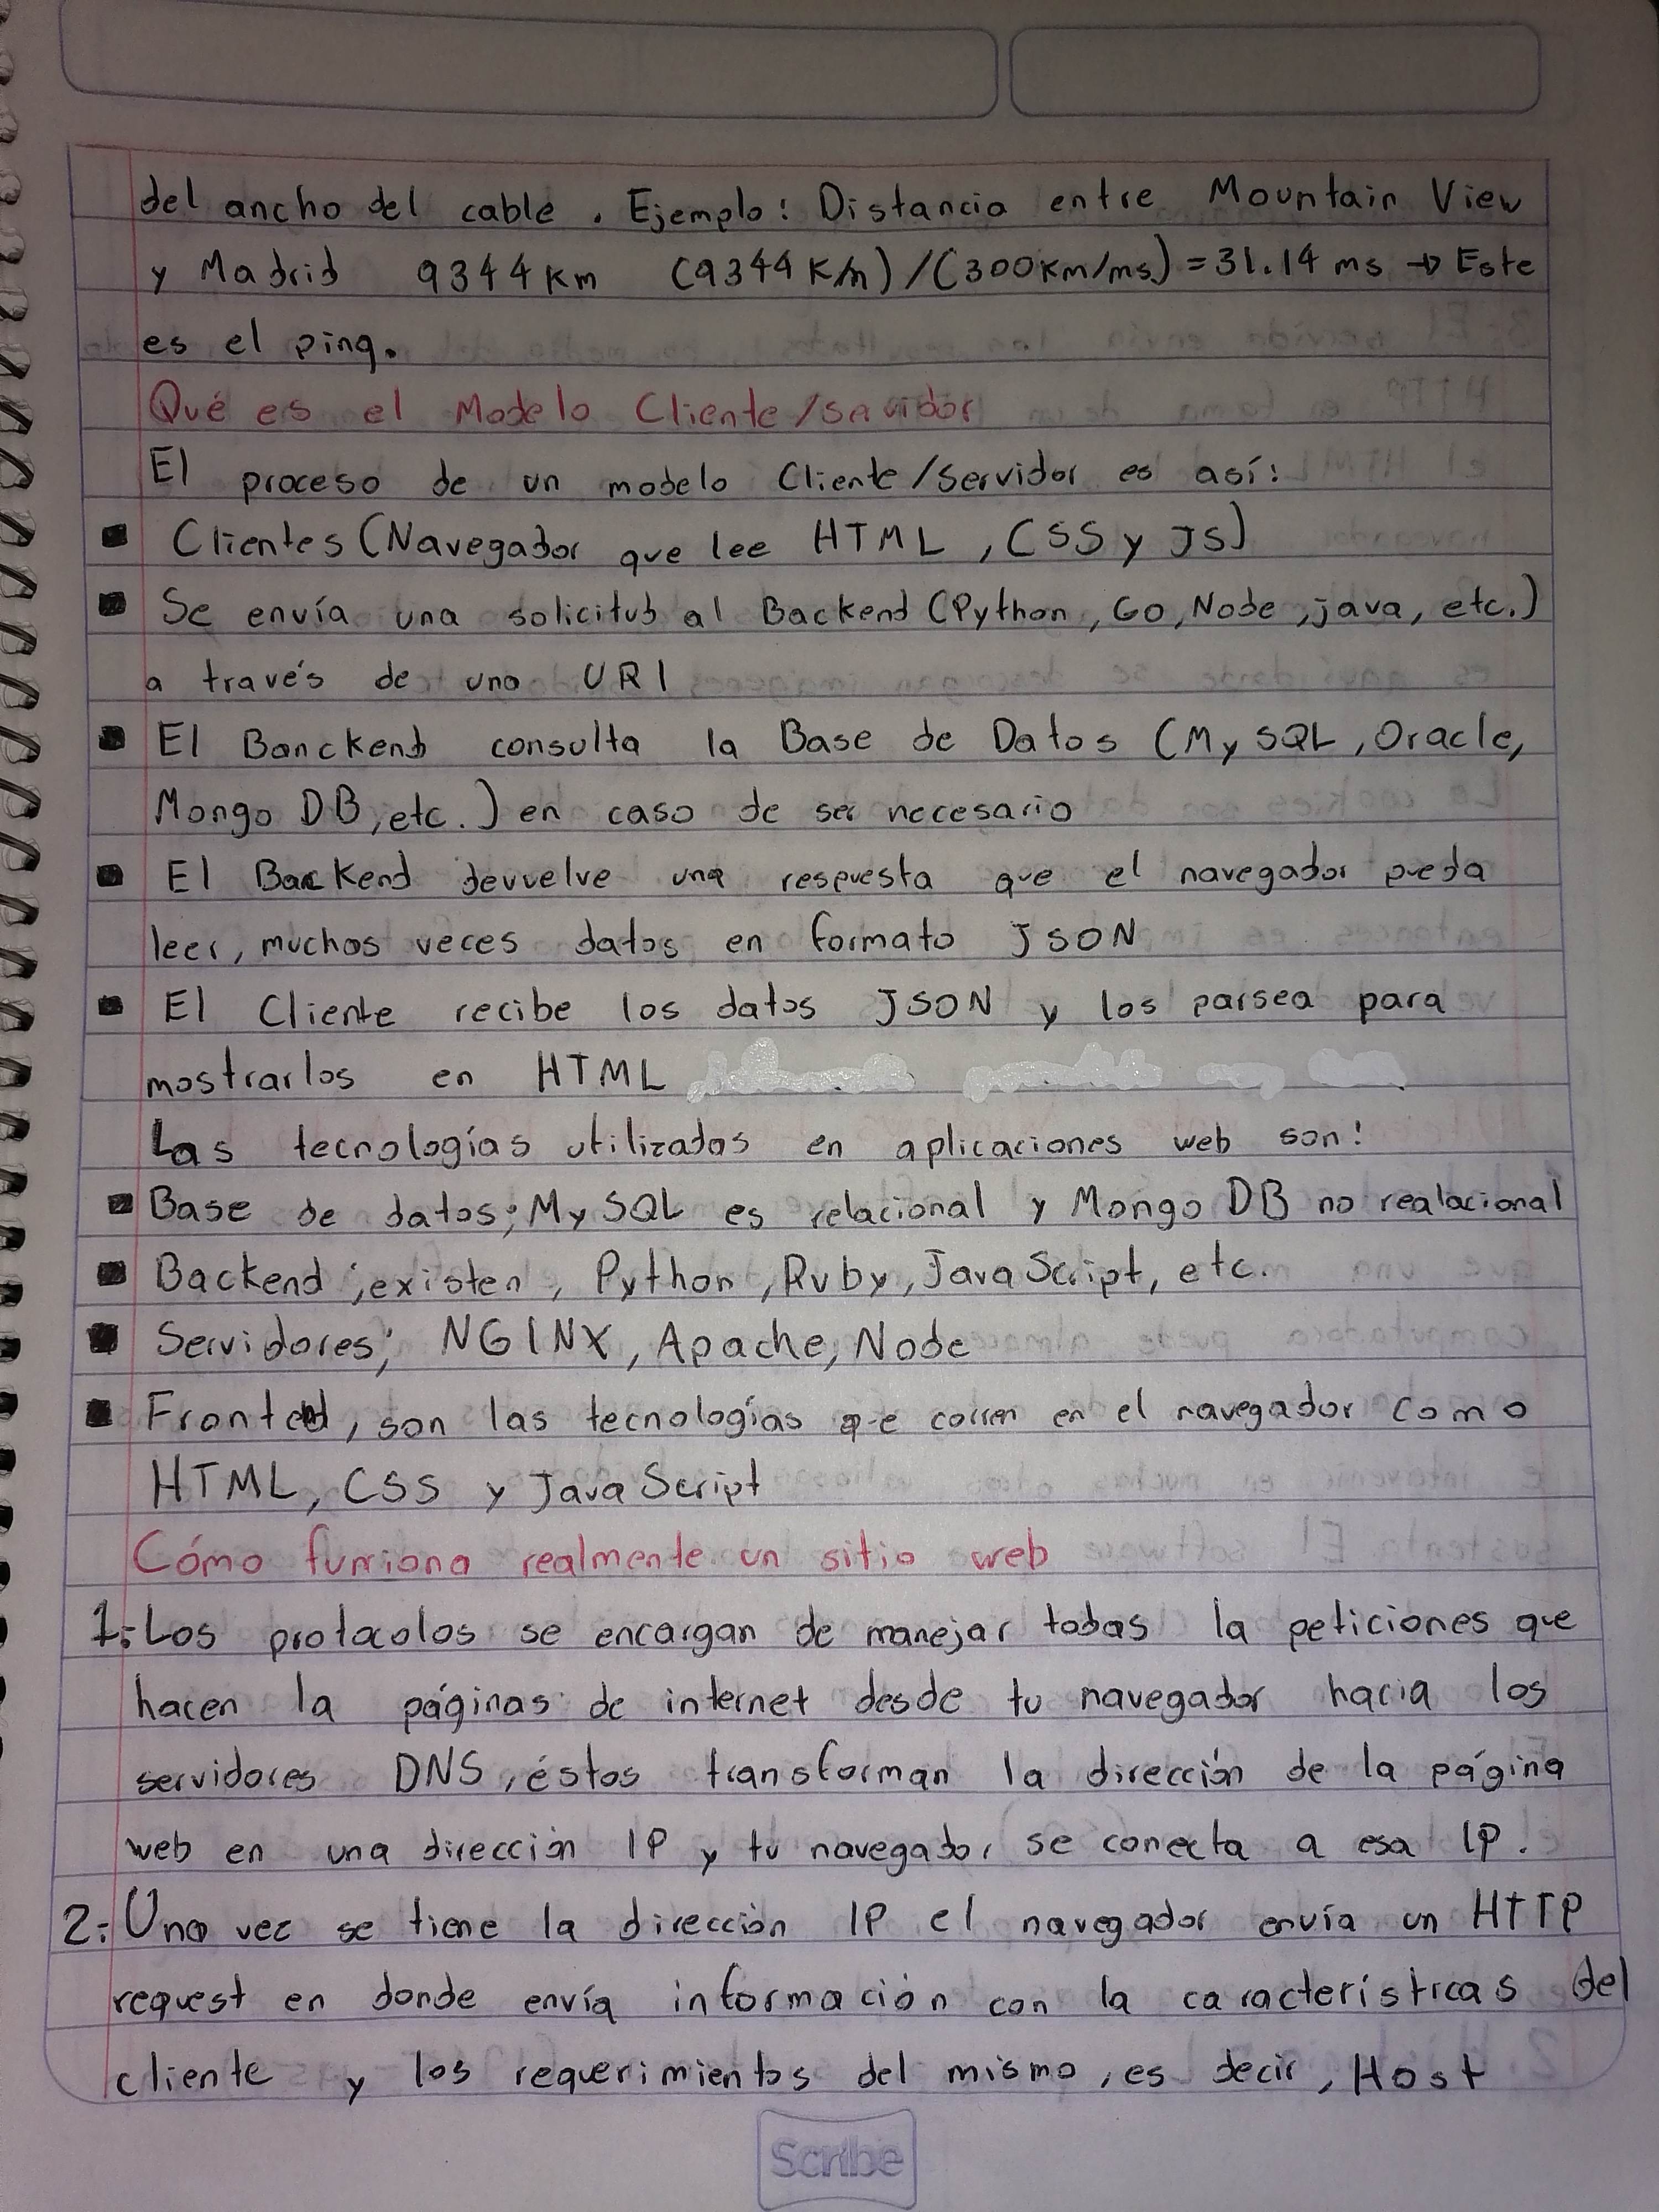 del ancho del cable. Ejemplo: Distancia entre Mountain View
y Madrid 9344 km (9344 Km) / (300Km/ms) = 31.14 ms → Este
es el ping.
Qué es el Modelo Cliente/servidor
El proceso de un modelo Cliente/Servidor es así:
▪ Clientes (Navegador que lee HTML, CSS y JS)
▪ Se envía una solicitud al Backend (Python, Go, Node, java, etc.)
a través de una URI
▪ El Banckend consulta la Base de Datos (MySQL, Oracle,
Mongo DB, etc.) en caso de ser necesario
▪ El Backend devuelve una respuesta que el navegador pueda
leer, muchas veces datos en formato JSON
▪ El Cliente recibe los datos JSON y los parsea para
mostrarlos en HTML
Las tecnologías utilizadas en aplicaciones web son:
▪ Base de datos; MySQL es relacional y Mongo DB no realacional
▪ Backend; existen, Python, Ruby, JavaScript, etc.
▪ Servidores; NGINX, Apache, Node
▪ Fronted, son las tecnologías que corren en el navegador como
HTML, CSS y JavaScript
Cómo funciona realmente un sitio web
1:Los protocolos se encargan de manejar todas la peticiones que
hacen la páginas de internet desde tu navegador hacia los
servidores DNS, éstos transforman la dirección de la página
web en una dirección IP y tu navegador se conecta a esa IP.
2:Una vez se tiene la dirección IP el navegador envía un HTTP
request en donde envía información con la características del
cliente y los requerimientos del mismo, es decir, Host
Scribe